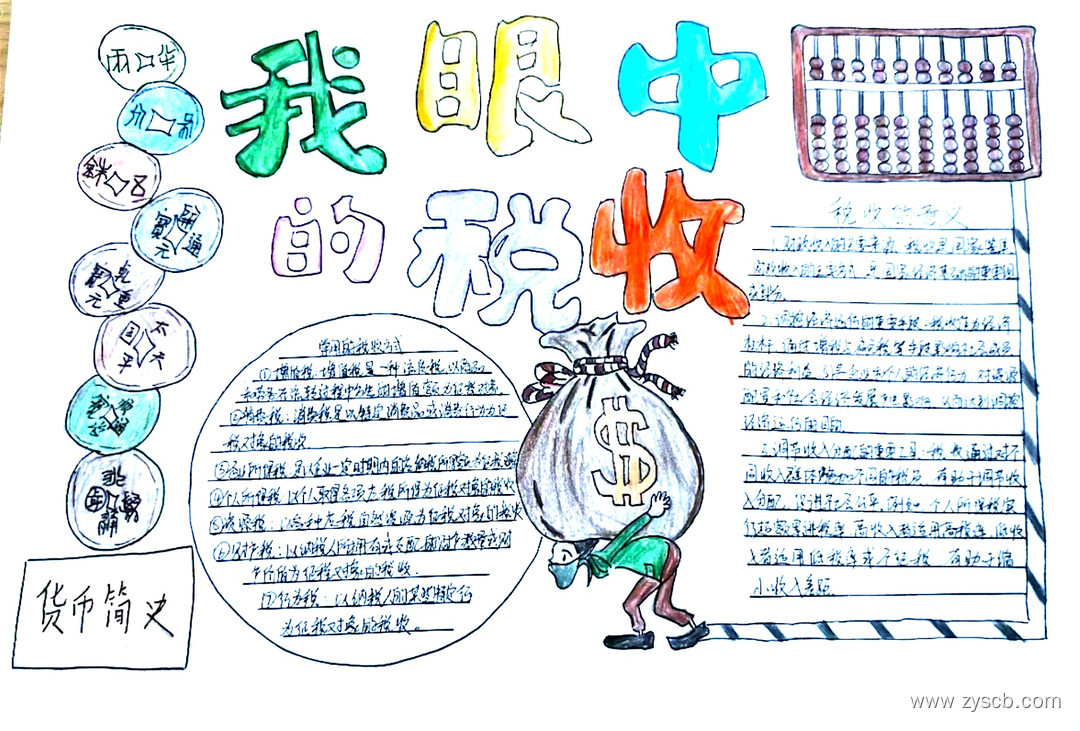 我眼中
的税收
半两
開元通寶
太平
货币简史
常用的税收方式
①增值税:增值税是一种流转税,以商品
和劳务在流转过程中产生的增值额为征税对象
②消费税:消费税是以特定消费品或消费行为为征
税对象的税收
③企业所得税:是企业一定时期内
④个人所得税:以个人取得各项应税所得为征税对象的税收
⑤资源税:以各种应税自然资源为征税对象的税收
⑥财产税:以纳税人所拥有或支配的财产数量或财
产价值为征税对象的税收.
⑦行为税:以纳税人的某些特定行
为征税对象的税收。
税收的意义
1.财政收入的主要来源,税收是国家
财政收入的 是国家经济 的重要组
成部分
2.调控经济运行的重要手段.税收作为经济
杠杆,通过增税与减免税等手段影响社会成员
的经济利益,引导企业和个人的经济行为,对资源
配置和社会经济发展产生影响,从而达到调控
经济运行的目的.
3.调节收入分配的重要工具.税 通过对不
同收入 不同的税 ,有助于调节收
入分配,促进社会公平.例如,个人所得税实
行超额累进税率,高收入者适用高税率,低收
入者适用低税率或不征税,有助于缩
小收入差距.
www.zyscb.com